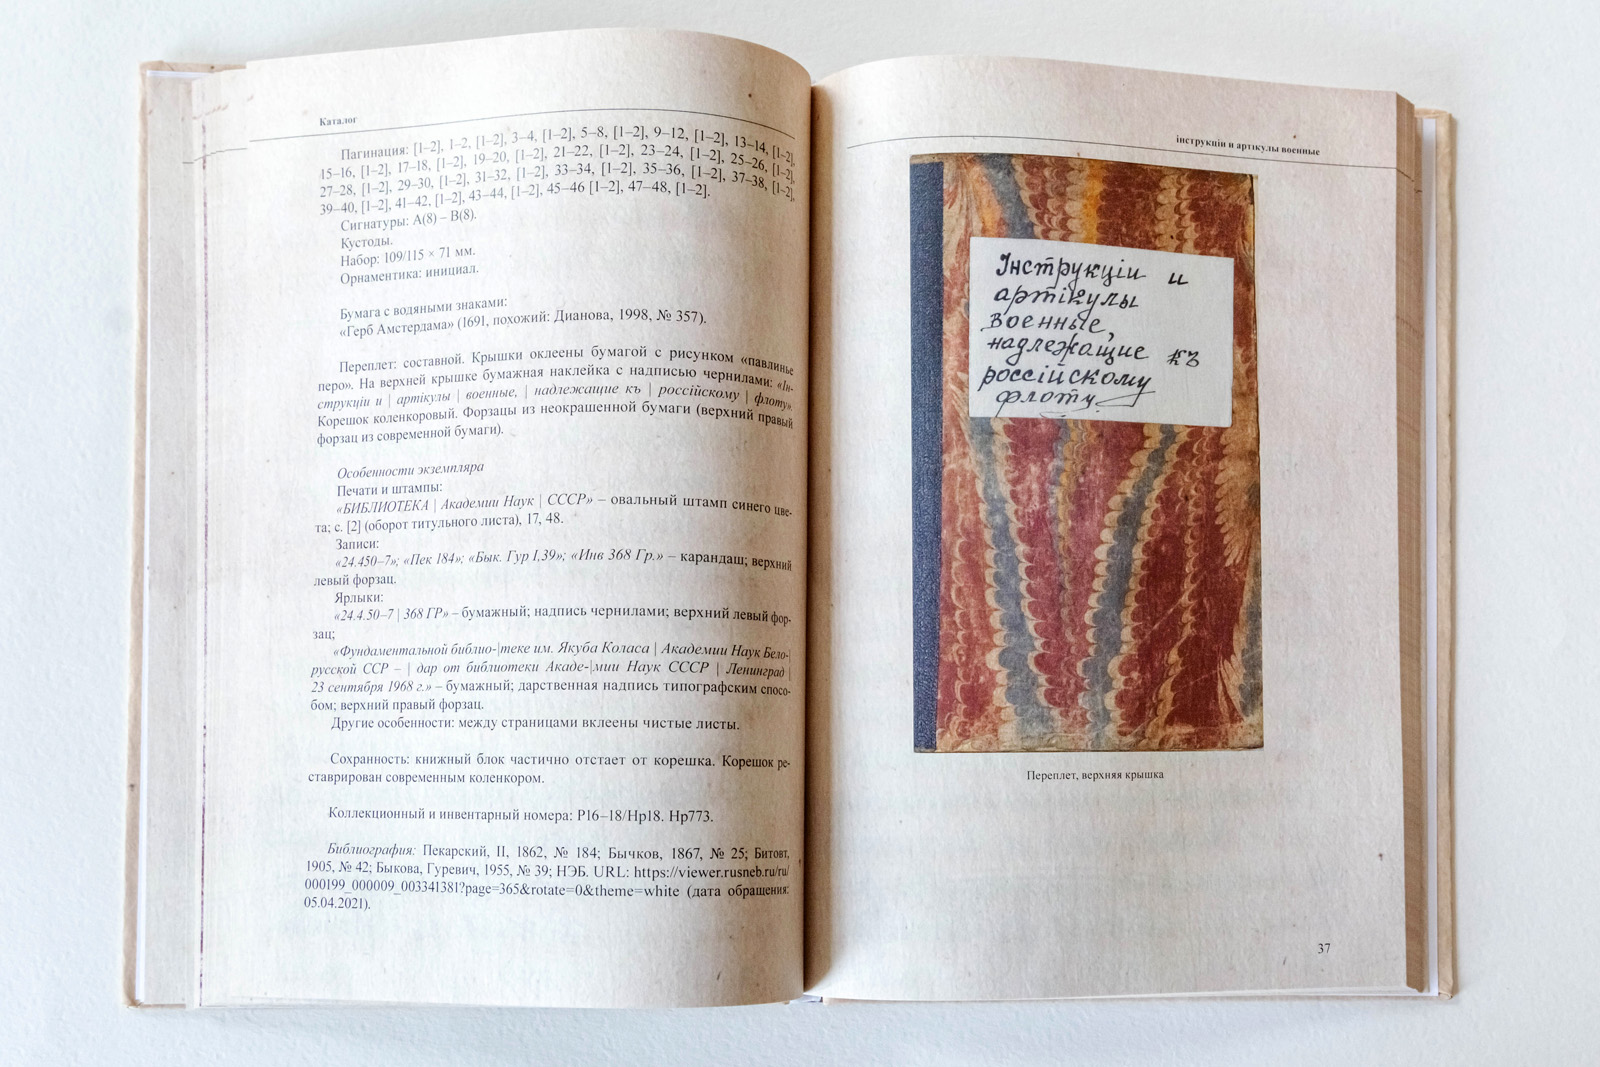 Каталог
Пагинация: [1–2], 1–2, [1–2], 3–4, [1–2], 5–8, [1–2], 9–12, [1–2], 13–14, [1–2],
15–16, [1–2], 17–18, [1–2], 19–20, [1–2], 21–22, [1–2], 23–24, [1–2], 25–26, [1–2],
27–28, [1–2], 29–30, [1–2], 31–32, [1–2], 33–34, [1–2], 35–36, [1–2], 37–38, [1–2],
39–40, [1–2], 41–42, [1–2], 43–44, [1–2], 45–46 [1–2], 47–48, [1–2].
Сигнатуры: А(8) – В(8).
Кустоды.
Набор: 109/115 × 71 мм.
Орнаментика: инициал.
Бумага с водяными знаками:
«Герб Амстердама» (1691, похожий: Дианова, 1998, № 357).
Переплет: составной. Крышки оклеены бумагой с рисунком «павлинье
перо». На верхней крышке бумажная наклейка с надписью чернилами: «Ін-
струкціи и | артікулы | военные, | надлежащие къ | россійскому | флоту».
Корешок коленкоровый. Форзацы из неокрашенной бумаги (верхний правый
форзац из современной бумаги).
Особенности экземпляра
Печати и штампы:
«БИБЛИОТЕКА | Академии Наук | СССР» – овальный штамп синего цве-
та; с. [2] (оборот титульного листа), 17, 48.
Записи:
«24.450–7»; «Пек 184»; «Бык. Гур I,39»; «Инв 368 Гр.» – карандаш; верхний
левый форзац.
Ярлыки:
«24.4.50–7 | 368 ГР» – бумажный; надпись чернилами; верхний левый фор-
зац;
«Фундаментальной библио-|теке им. Якуба Коласа | Академии Наук Бело-|
русской ССР – | дар от библиотеки Акаде-|мии Наук СССР | Ленинград |
23 сентября 1968 г.» – бумажный; дарственная надпись типографским спосо-
бом; верхний правый форзац.
Другие особенности: между страницами вклеены чистые листы.
Сохранность: книжный блок частично отстает от корешка. Корешок ре-
ставрирован современным коленкором.
Коллекционный и инвентарный номера: Р16–18/Нр18. Нр773.
Библиография: Пекарский, II, 1862, № 184; Бычков, 1867, № 25; Битовт,
1905, № 42; Быкова, Гуревич, 1955, № 39; НЭБ. URL: https://viewer.rusneb.ru/ru/
000199_000009_003341381?page=365&rotate=0&theme=white (дата обращения:
05.04.2021).
інструкціи и артікулы военные
Інструкціи и
артікулы
военные,
надлежащие къ
россійскому
флоту
Переплет, верхняя крышка
37